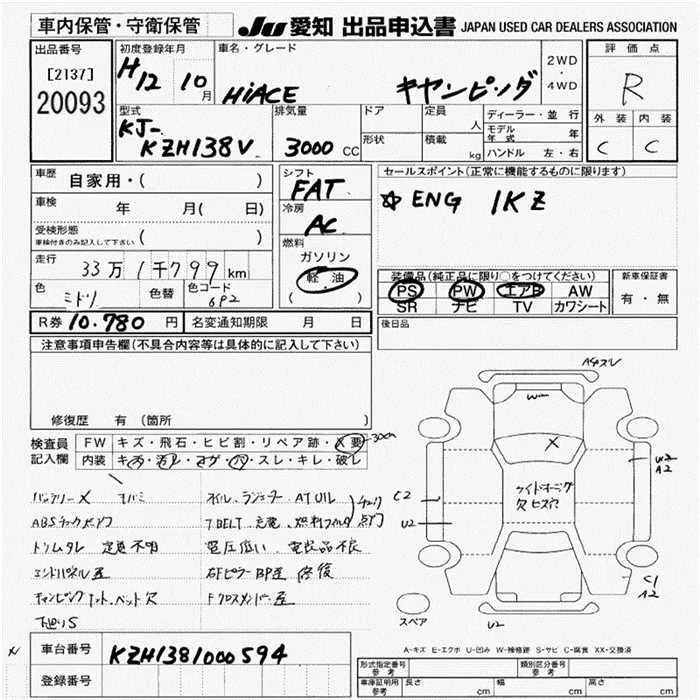 車内保管・守衛保管
JU 愛知 出品申込書 JAPAN USED CAR DEALERS ASSOCIATION
出品番号
[2137]
20093
初度登録年月
H12 10月
車名・グレード
HiACE キャンピング
2WD・4WD
評価点
R
外装 内装
C C
型式
KJ-
KZH138V
排気量
3000 CC
ドア
形状
定員 人
積載 kg
ディーラー・並行
モデル年式 年
ハンドル 左・右
車歴 自家用・( )
車検 年 月( 日)
受検形態
車検付きのみ記入して下さい ( )
走行 33万1千799km
色 ミドリ 色替 色コード 6P2
シフト
FAT
冷房
AC
燃料
ガソリン
軽・油
( )
セールスポイント(正常に機能するものに限ります)
☆ ENG 1KZ
装備品(純正品に限り○をつけてください)
PS PW エアB AW
SR ナビ TV カワシート
新車保証書
有・無
R券 10.780 円 名変通知期限 月 日
後日品
注意事項申告欄(不具合内容等は具体的に記入して下さい)
修復歴 有(箇所 )
検査員記入欄
FW キズ・飛石・ヒビ割・リペア跡・X要 30cm
内装 キズ・汚レ・コゲ・穴・スレ・キレ・破レ
バッテリーX
ABSチェックランプ
トリムタレ 走行不明
電圧低い 電装品不良
エンドパネル歪
修復
Fクロスメンバー歪
下廻りS
車台番号 KZH1381000594
登録番号
W2
X
サイドオーニング
欠 ビス穴
C2
U2
A2
C1
A2
スペア
U2
A-キズ E-エクボ U-凹み W-補修跡 S-サビ C-腐食 XX-交換済
形式指定番号 参考
類別区分番号 参考
車庫証明用 参考 長さ cm 幅 cm 高さ cm